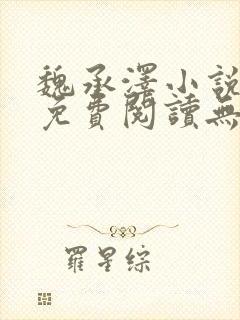 魏承澤小說
免費閱讀無
羅星綜